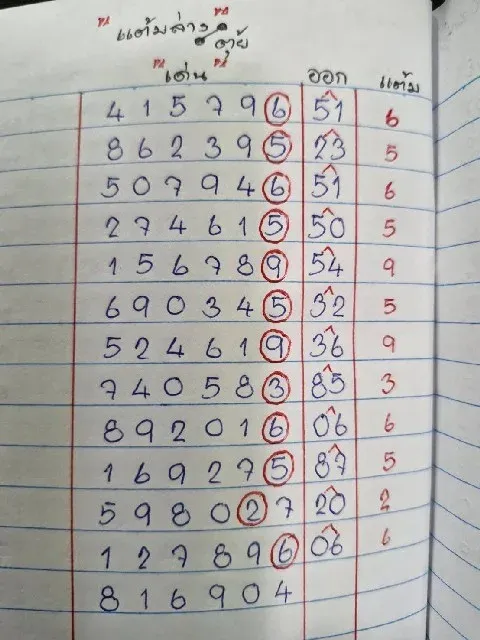 "แต้มล่าง" ตุ้ย
"เด่น" ออก แต้ม
4 1 5 7 9 6 51 6
8 6 2 3 9 5 23 5
5 0 7 9 4 6 51 6
2 7 4 6 1 5 50 5
1 5 6 7 8 9 54 9
6 9 0 3 4 5 32 5
5 2 4 6 1 9 36 9
7 4 0 5 8 3 85 3
8 9 2 0 1 6 06 6
1 6 9 2 7 5 87 5
5 9 8 0 2 7 20 2
1 2 7 8 9 6 06 6
8 1 6 9 0 4